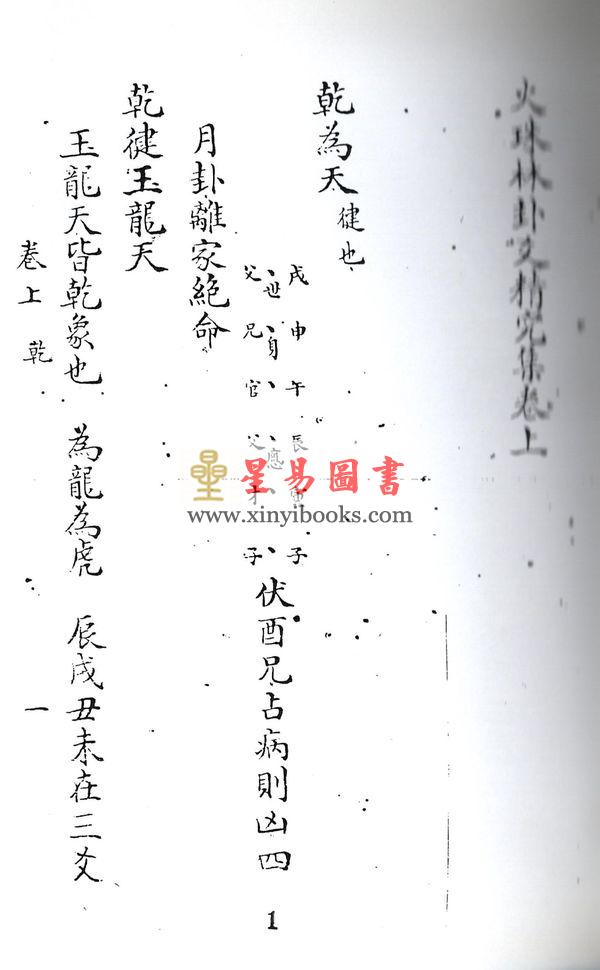 火珠林卦爻精究集卷上
乾為天 徤也
戌 申 午 辰 寅 子
、世 、身 、 、應 、 、
父 兄 官 父 才 子
伏酉兄占病則凶四
月卦離家絶命
乾徤玉龍天
玉龍天皆乾象也 為龍為虎 辰戌丑未在三爻
卷上 乾 一
星易圖書
www.xinyibooks.com
1